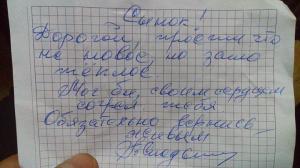 Сынок!
Дорогой, прости что
не новое, но зато
тёплое.
Мог бы, своим сердцем
согрел тебя
Обязательно вернись
живым